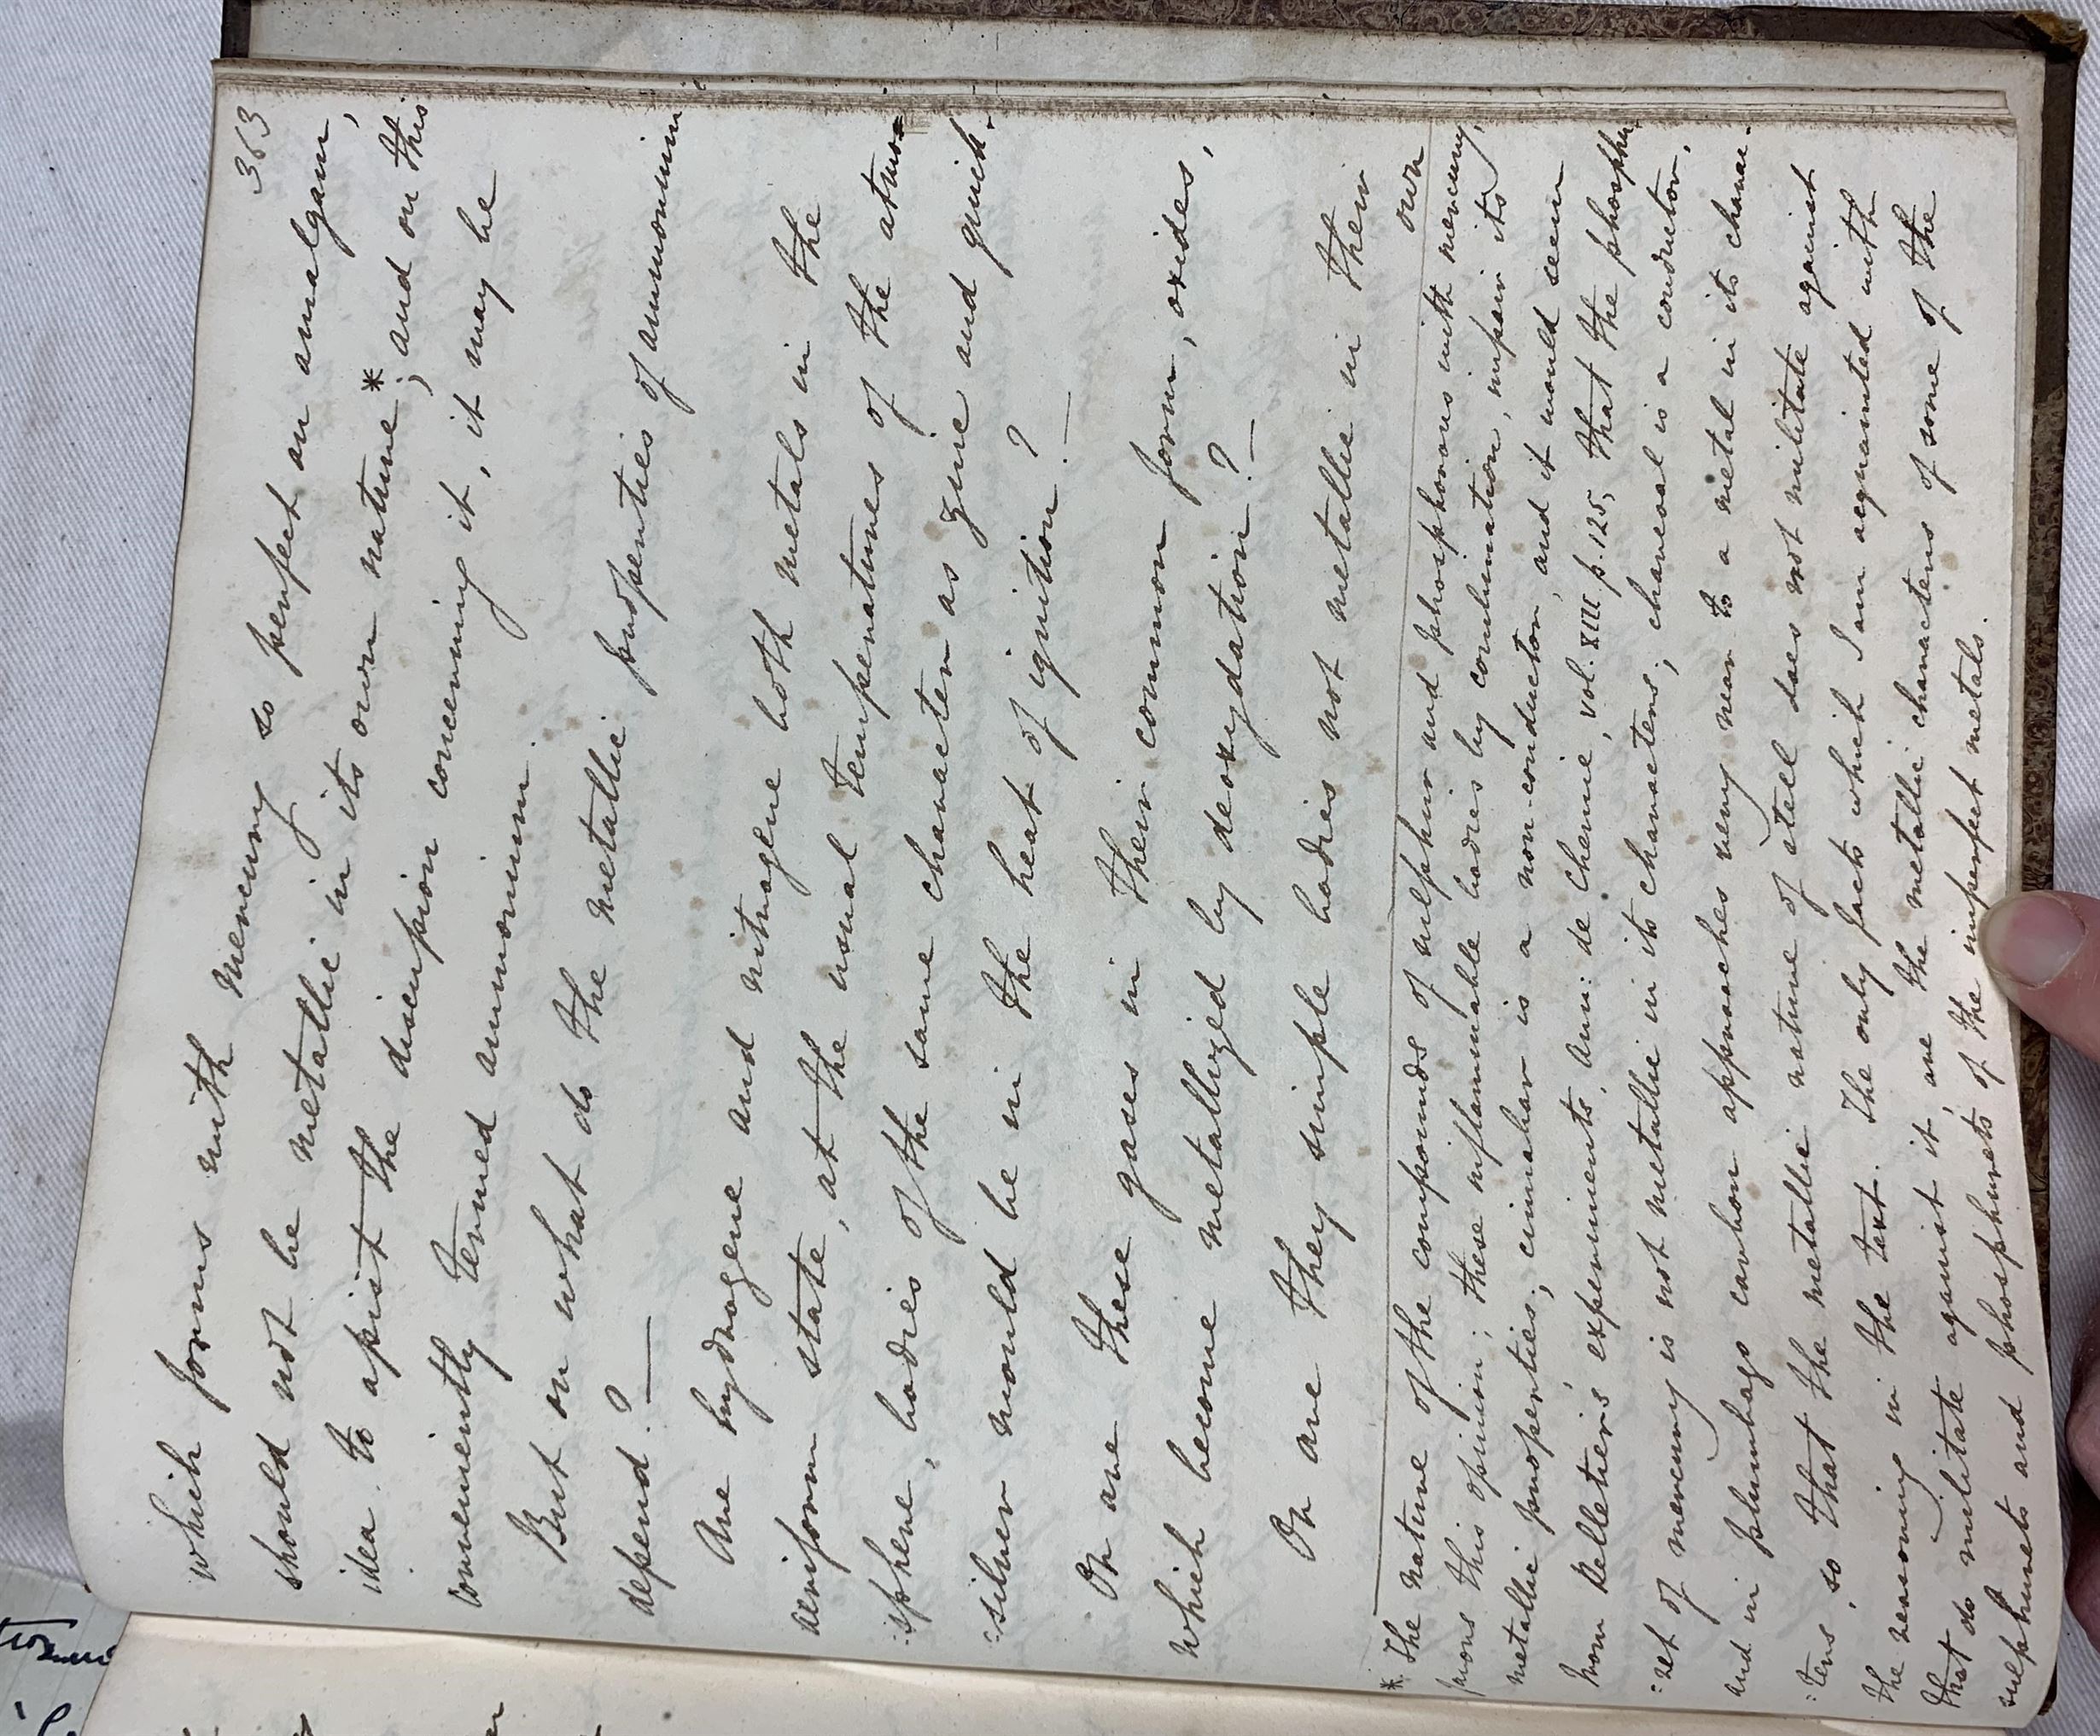 363
which forms with mercury so perfect an amalgam,
should not be metallic in its own nature*; and on this
idea to assist the discussion concerning it, it may be
conveniently termed ammonium.
But on what do the metallic properties of ammonium
depend?—
Are hydrogene and nitrogene both metals in the
aeriform state, at the usual temperatures of the atmo=
:sphere, bodies of the same character as zinc and quick-
:silver would be in the heat of ignition?—
Or are these gases in their common form, oxides,
which become metallized by deoxydation?—
Or are they simple bodies not metallic in their
own
* The nature of the compounds of sulphur and phosphorus with mercury,
favors this opinion; these inflammable bodies by combination, impair its
metallic properties; cinnabar is a non-conductor, and it would seem
from Pelletier's experiments, Ann: de Chemie, vol. XIII p. 125, that the phosphu
:ret of mercury is not metallic in its characters; charcoal is a conductor,
and in plumbago carbon approaches very near to a metal in its charac-
:ters, so that the metallic nature of steel does not militate against
the reasoning in the text. The only facts which I am acquainted with
that do militate against it, are the metallic characters of some of the
sulphurets and phosphurets of the imperfect metals.